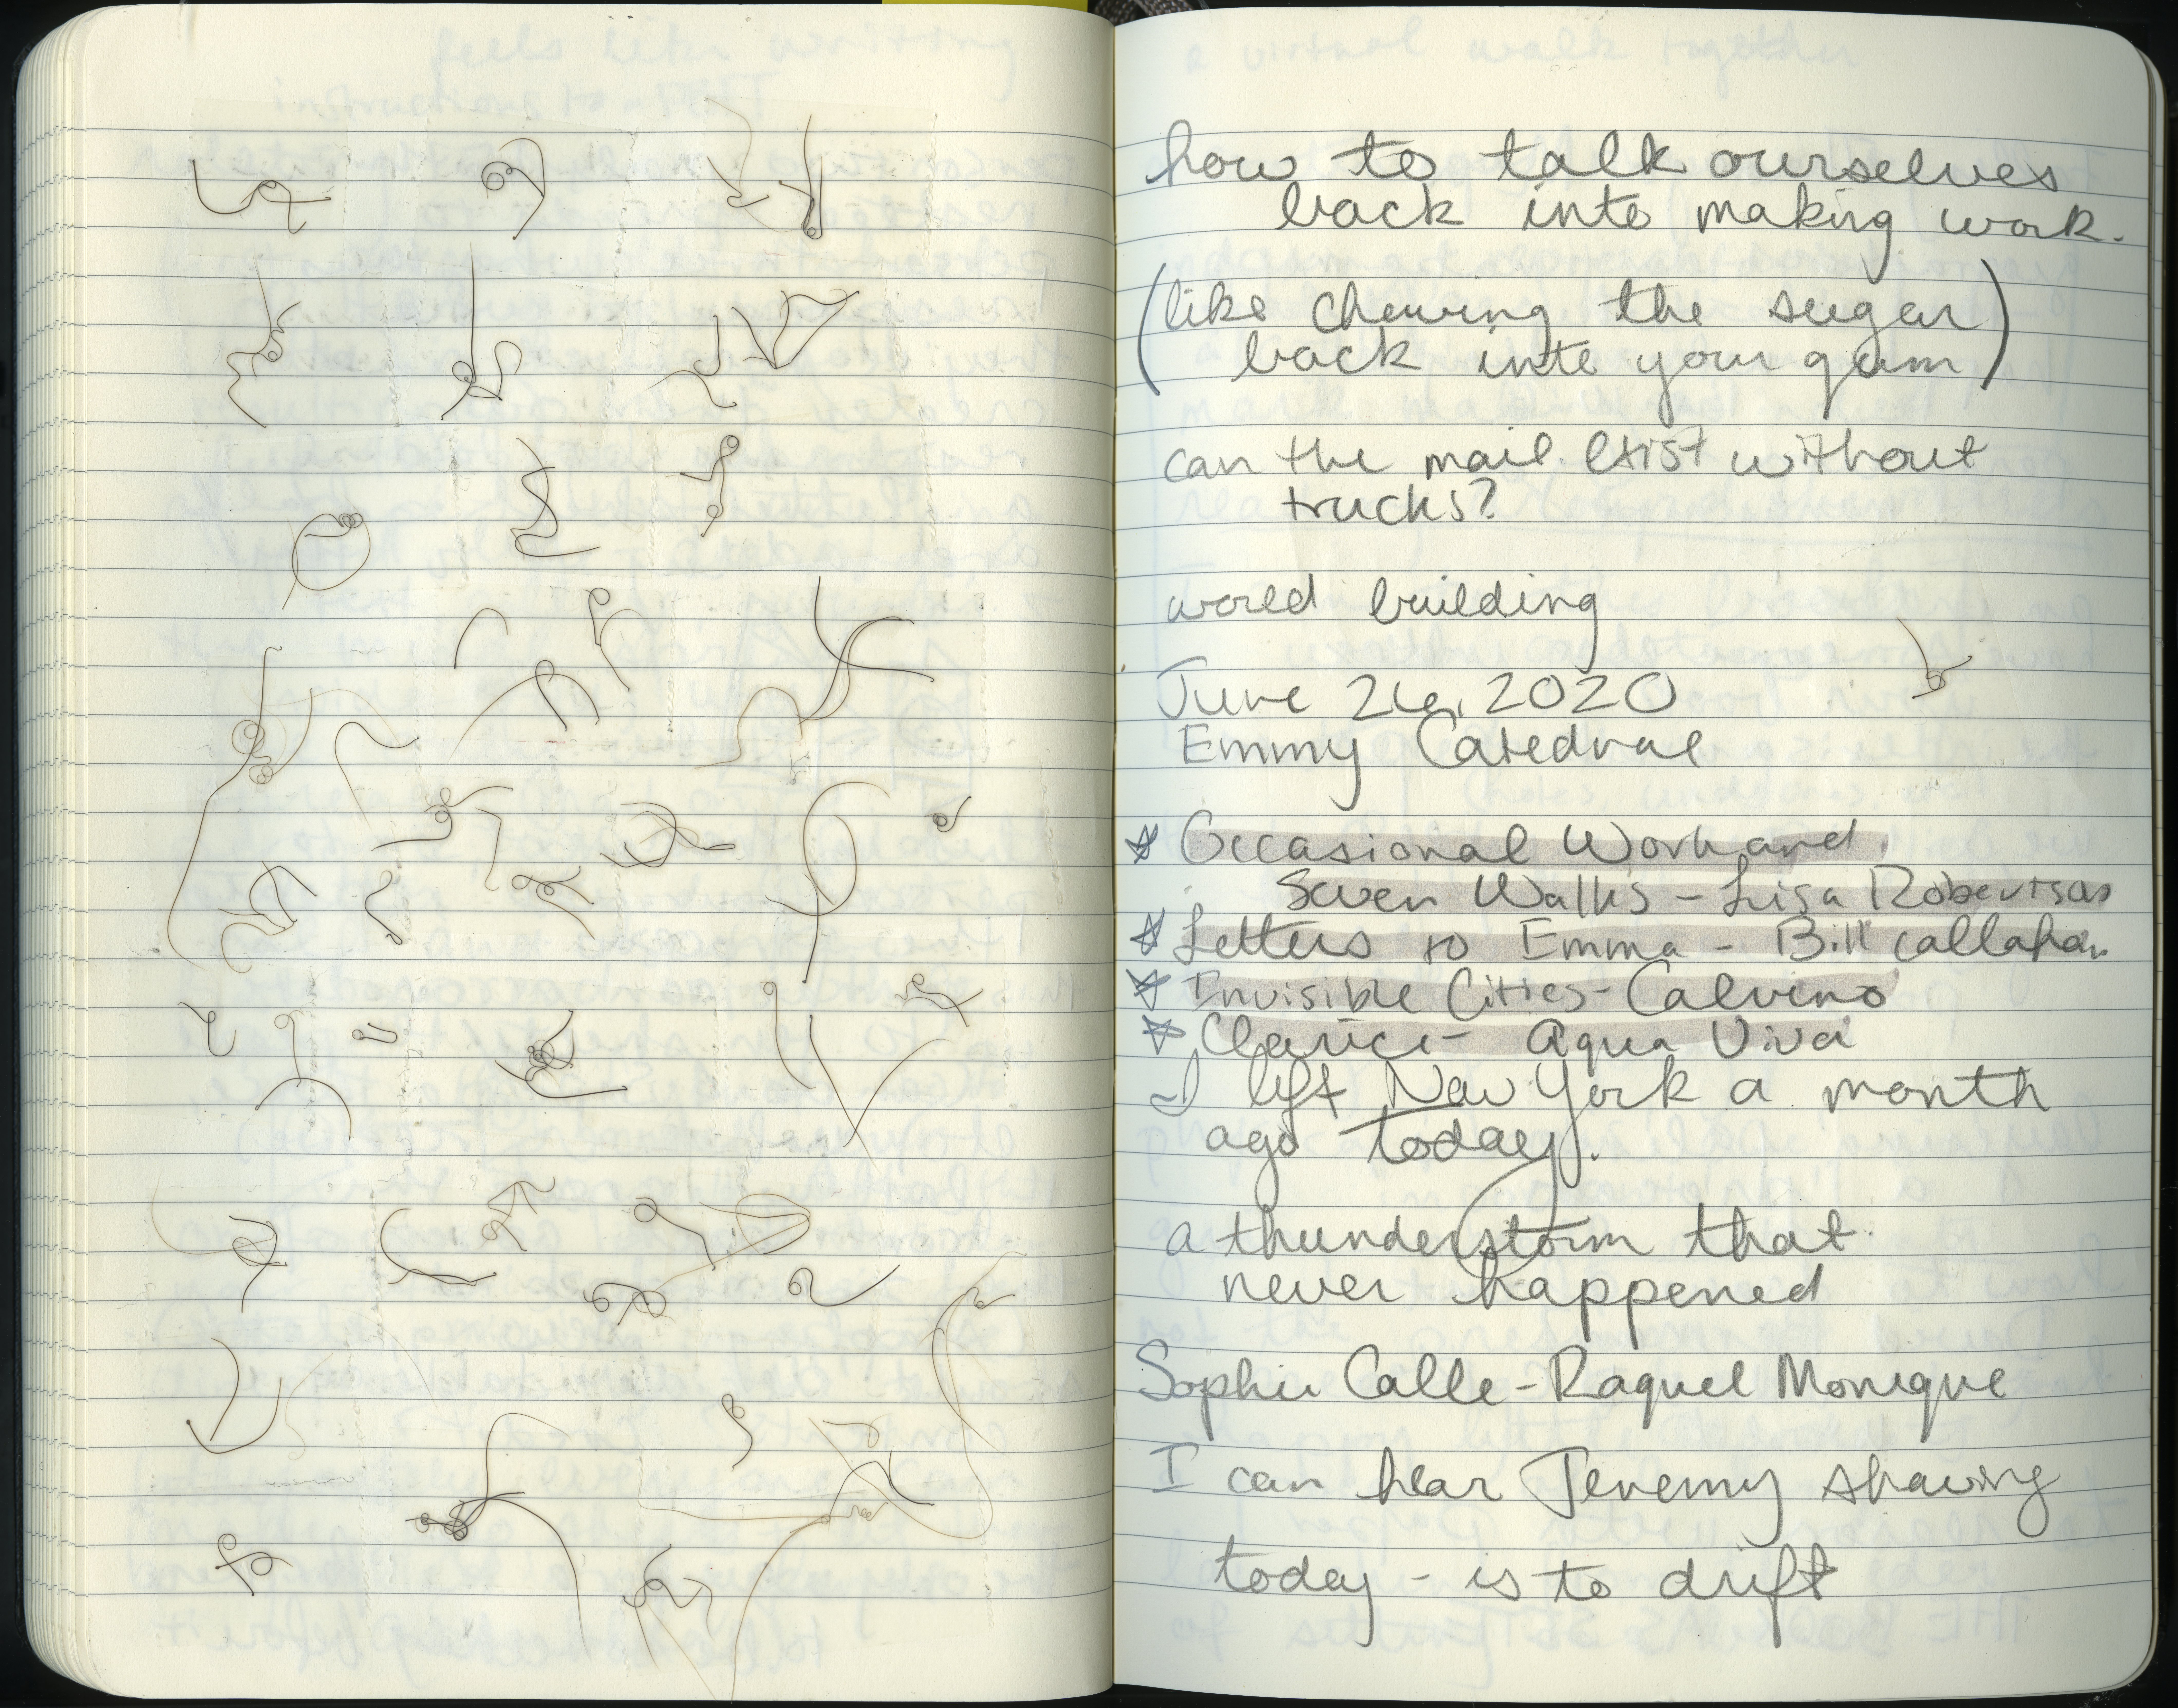 how to talk ourselves
back into making work.
(like chewing the sugar
back into your gum)
can the mail exist without
trucks?
world building
June 26, 2020
Emmy Catedral
☆ Occasional Work and
Seven Walks - Lisa Robertson
☆ Letters to Emma - Bill Callahan
☆ Invisible Cities - Calvino
☆ Clarice - Aqua Viva
I left New York a month
ago today.
a thunderstorm that
never happened
Sophie Calle - Raquel Monique
I can hear Jeremy shaving
today - is to drift